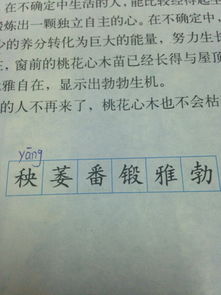 在不确定中生活的人，能比较经得起生
锻炼出一颗独立自主的心。在不确定中，
少的养分转化为巨大的能量，努力生长
，窗前的桃花心木苗已经长得与屋顶
雅自在，显示出勃勃生机。
的人不再来了，桃花心木也不会枯
yāng
秧萎番锻雅勃